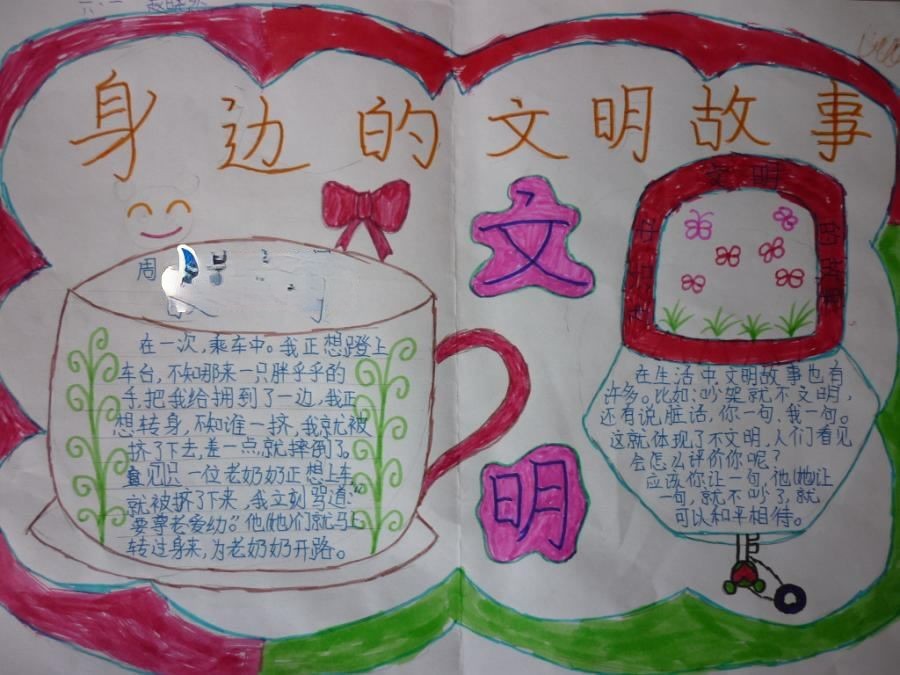 六.一
身边的文明故事
周
在一次,乘车中。我正想蹬上
车台,不知那来一只胖乎乎的
手,把我给拥到了一边,我正
想转身,不知谁一挤,我就被
挤了下去,差一点就摔倒了。
见只一位老奶奶正想上车,
就被挤了下来,我立刻骂道:“
要尊老爱幼。”他(她)们就马上
转过身来,为老奶奶开路。
文
明
文明
在生活中,文明故事也有
许多。比如:吵架就不文明,
还有说脏话,你一句,我一句。
这就体现了不文明,人们看见
会怎么评价你呢?
应该你让一句,他(她)让
一句,就不吵了,就
可以和平相待。